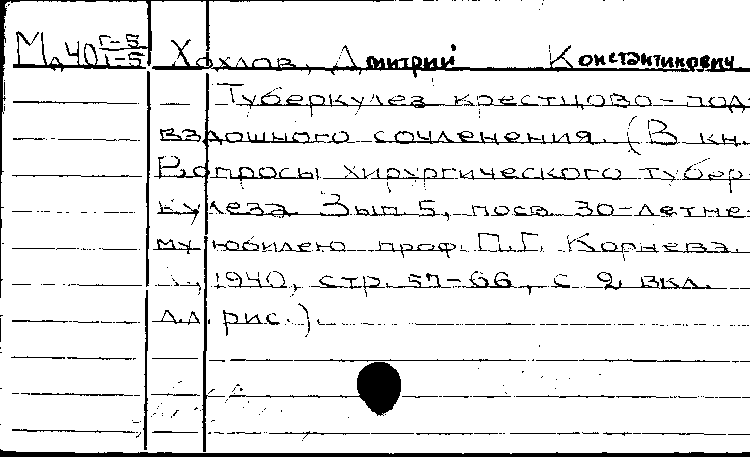 М,40 Г-5/1-5 Хохлов, Дмитрий Константинович
— Туберкулез крестцово-под-
вздошного сочленения. (В кн.
Вопросы хирургического тубер-
кулеза. Вып 5, посв. 30-летне-
му юбилею проф. П.Г. Корнева.
Л., 1940, стр. 57-66, с 2 вкл.
л.л. рис.).